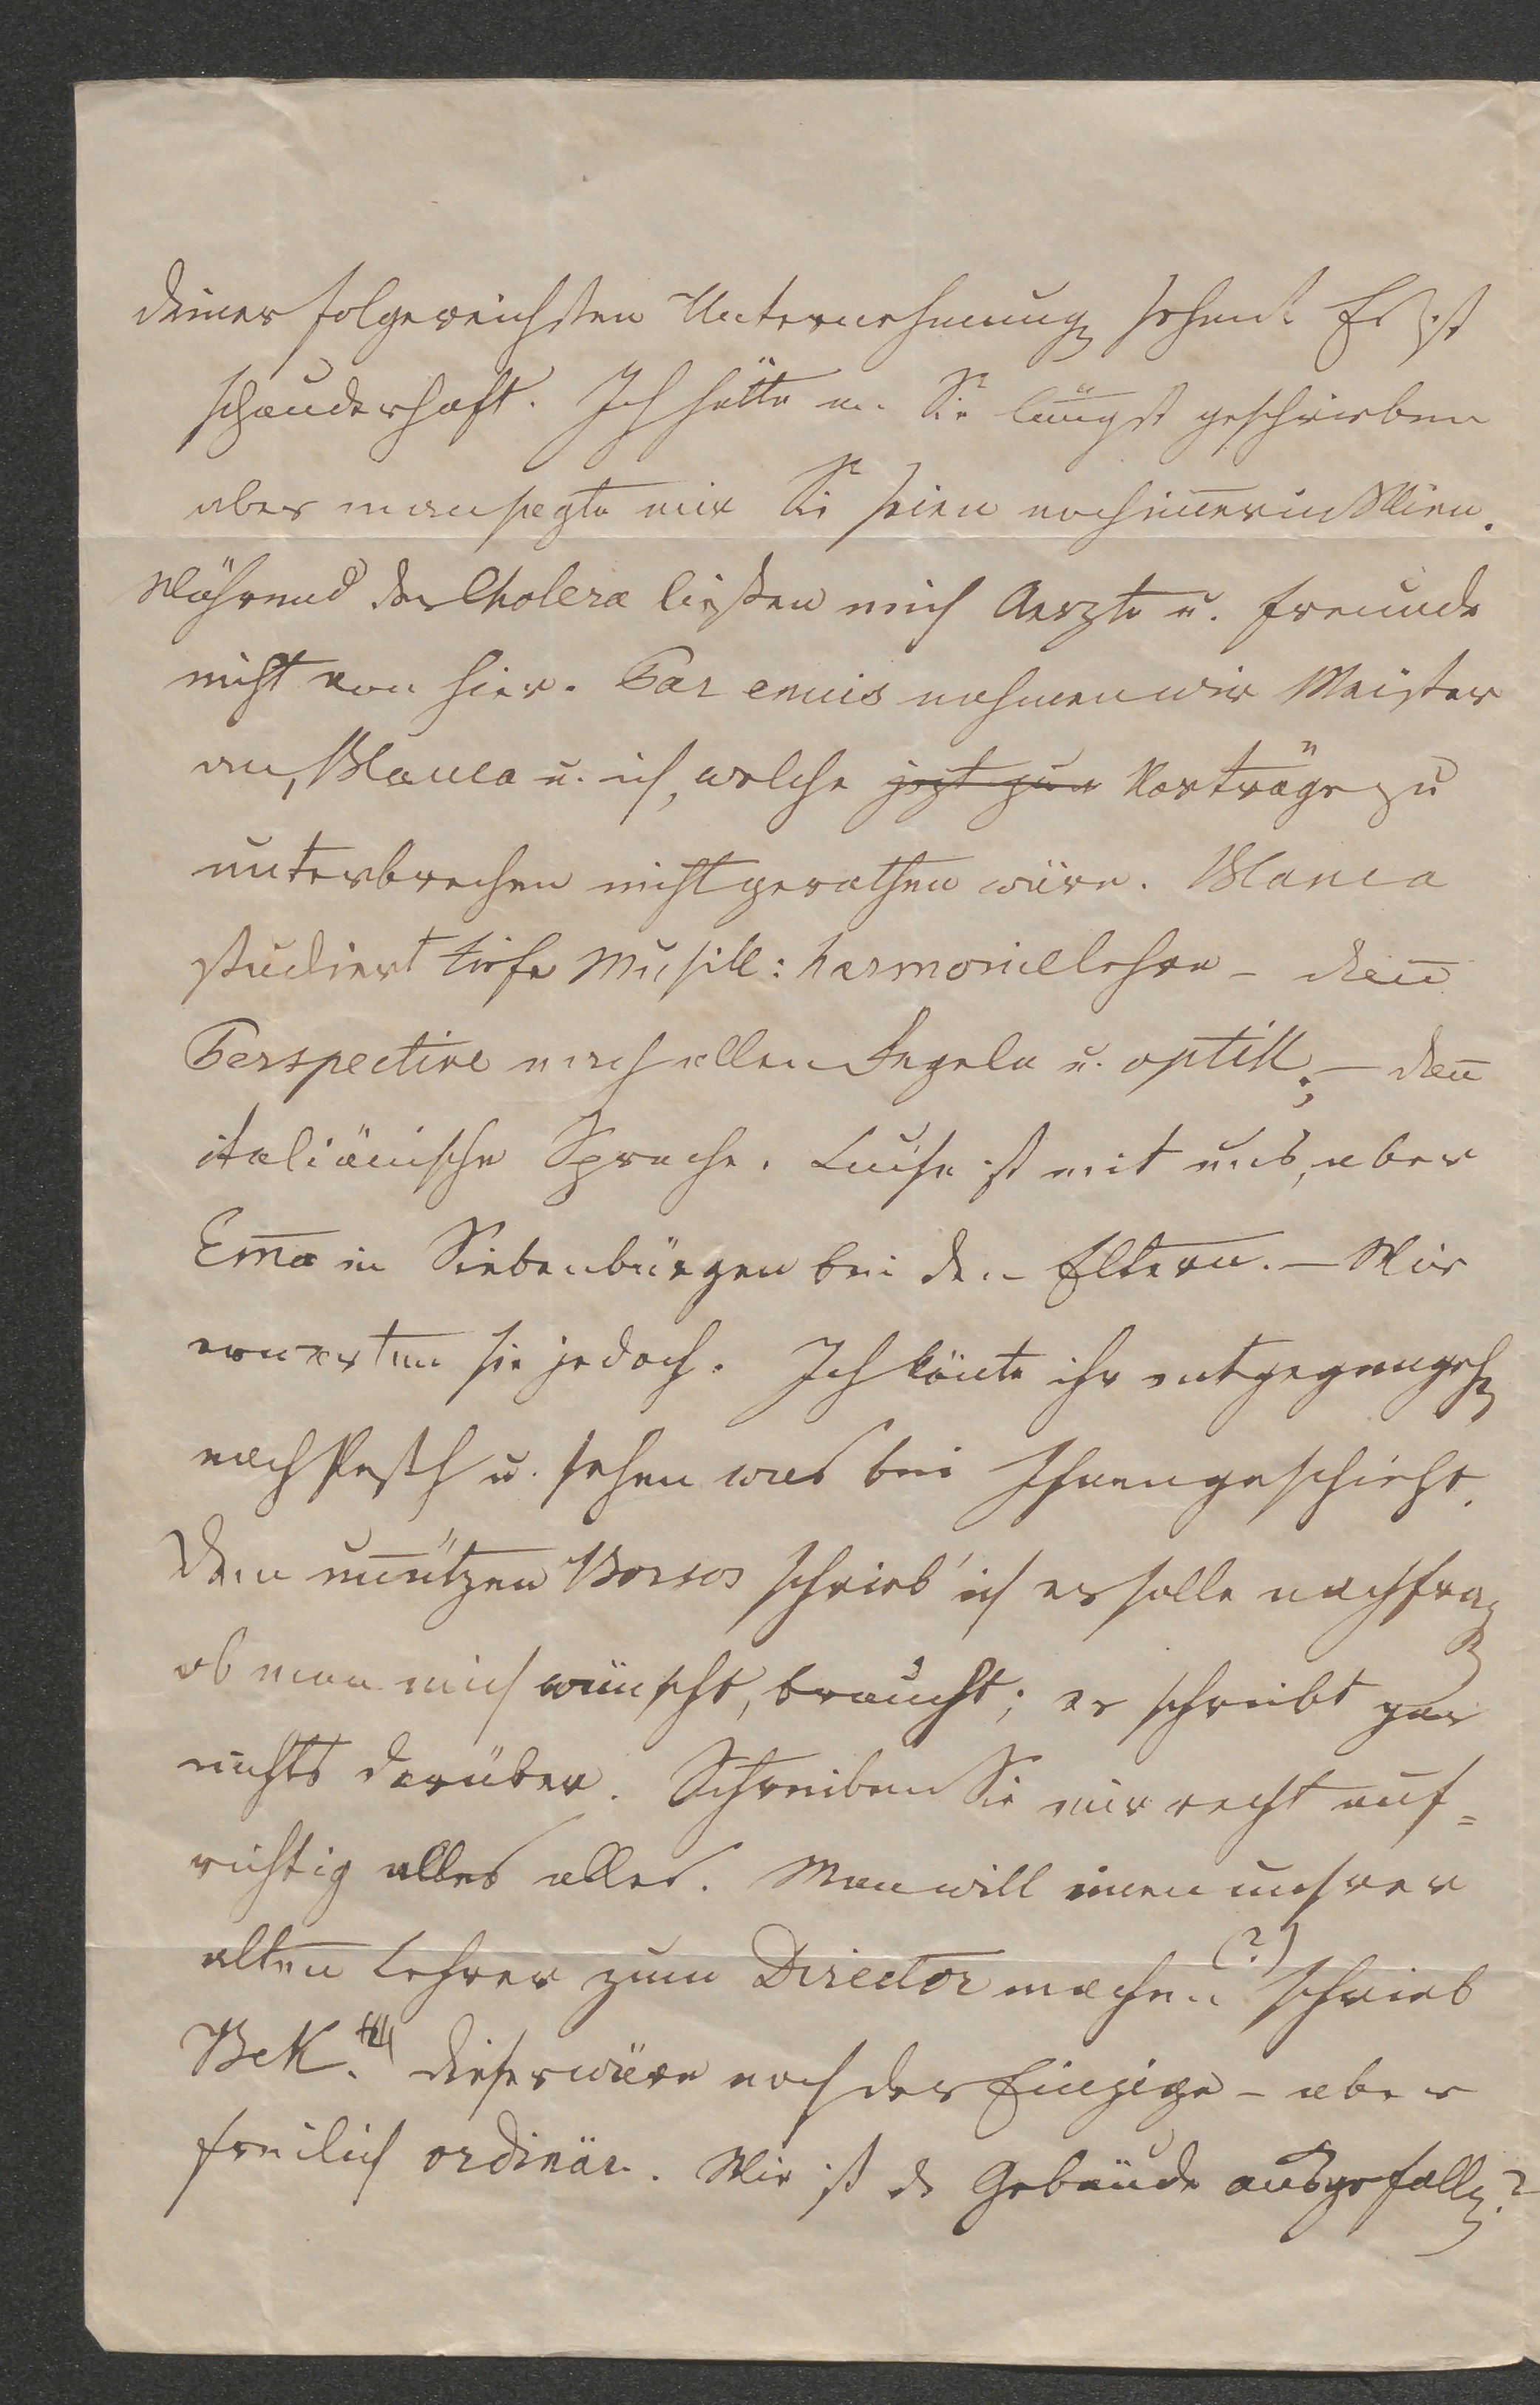 deiner folgereichsten Unternehmung sehend. Es ist
schauderhaft. Ich hätte an Sie längst geschrieben
aber man sagte mir Sie seien noch im̅er in Wien.
Während der Cholera ließen mich Aerzte u. Freunde
nicht von hier. Par ennui nahmen wir Meister
an, Blanca u. ich, welche Vorträge zu
unterbrechen nicht gerathen wäre. Blanca
studiert tiefe Musik: harmonielehre – dan̅
Perspective nach allen Regeln u. optik; – dan̅
italiänische Sprache. Luise ist mit uns, aber
Em̅a in Siebenbürgen bei den Eltern. – Wir
erwarten sie jedoch. Ich kön̅te ihr entgegengehen
nach Pesth u. sehen was bei Ihnen geschieht.
Dem un̅ützen Borsos schrieb' ich er solle nachfragen
ob man mich wünscht, braucht; er schreibt gar
nichts darüber. Schreiben Sie mir recht auf=
richtig alles alles. Man will einen unsrer
alten Lehrer zum Director machen (?) schrieb
Bek. dieser wäre noch der Einzige – aber
freilich ordinär. Wie ist ds Gebäude ausgefallen?